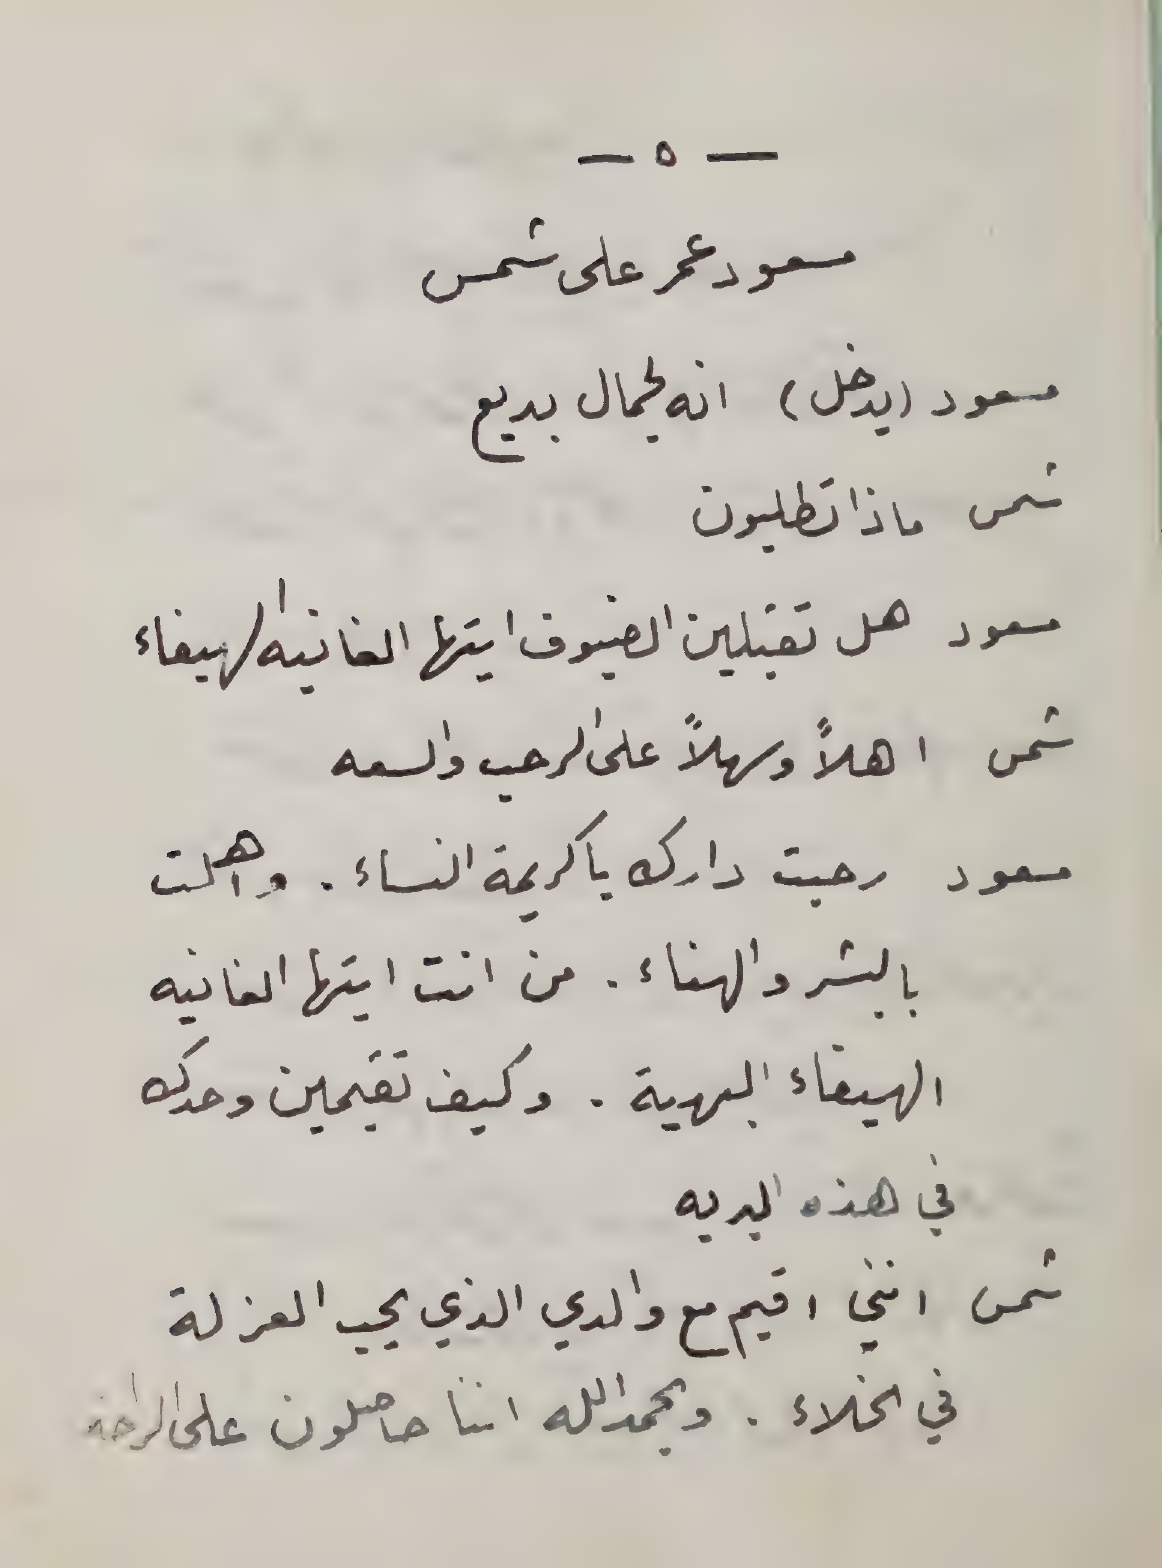 — ٥ —
مسعود عمر على شمس
مسعود (يدخل) انه لجمال بديع
شمس ماذا تطلبون
مسعود هل تقبلين الضيوف ايتها الغانيه الهيفاء
شمس اهلاً وسهلاً على الرحب والسعه
مسعود رحبت دارك يا كريمة النساء . واهلت
بالبشر والهناء . من انت ايتها الغانيه
الهيفاء البهية . وكيف تقيمين وحدك
في هذه البريه
شمس انني اقيم مع والدي الذي يحب العزلة
في الخلاء . وبحمد الله اننا حاصلون على الراحه